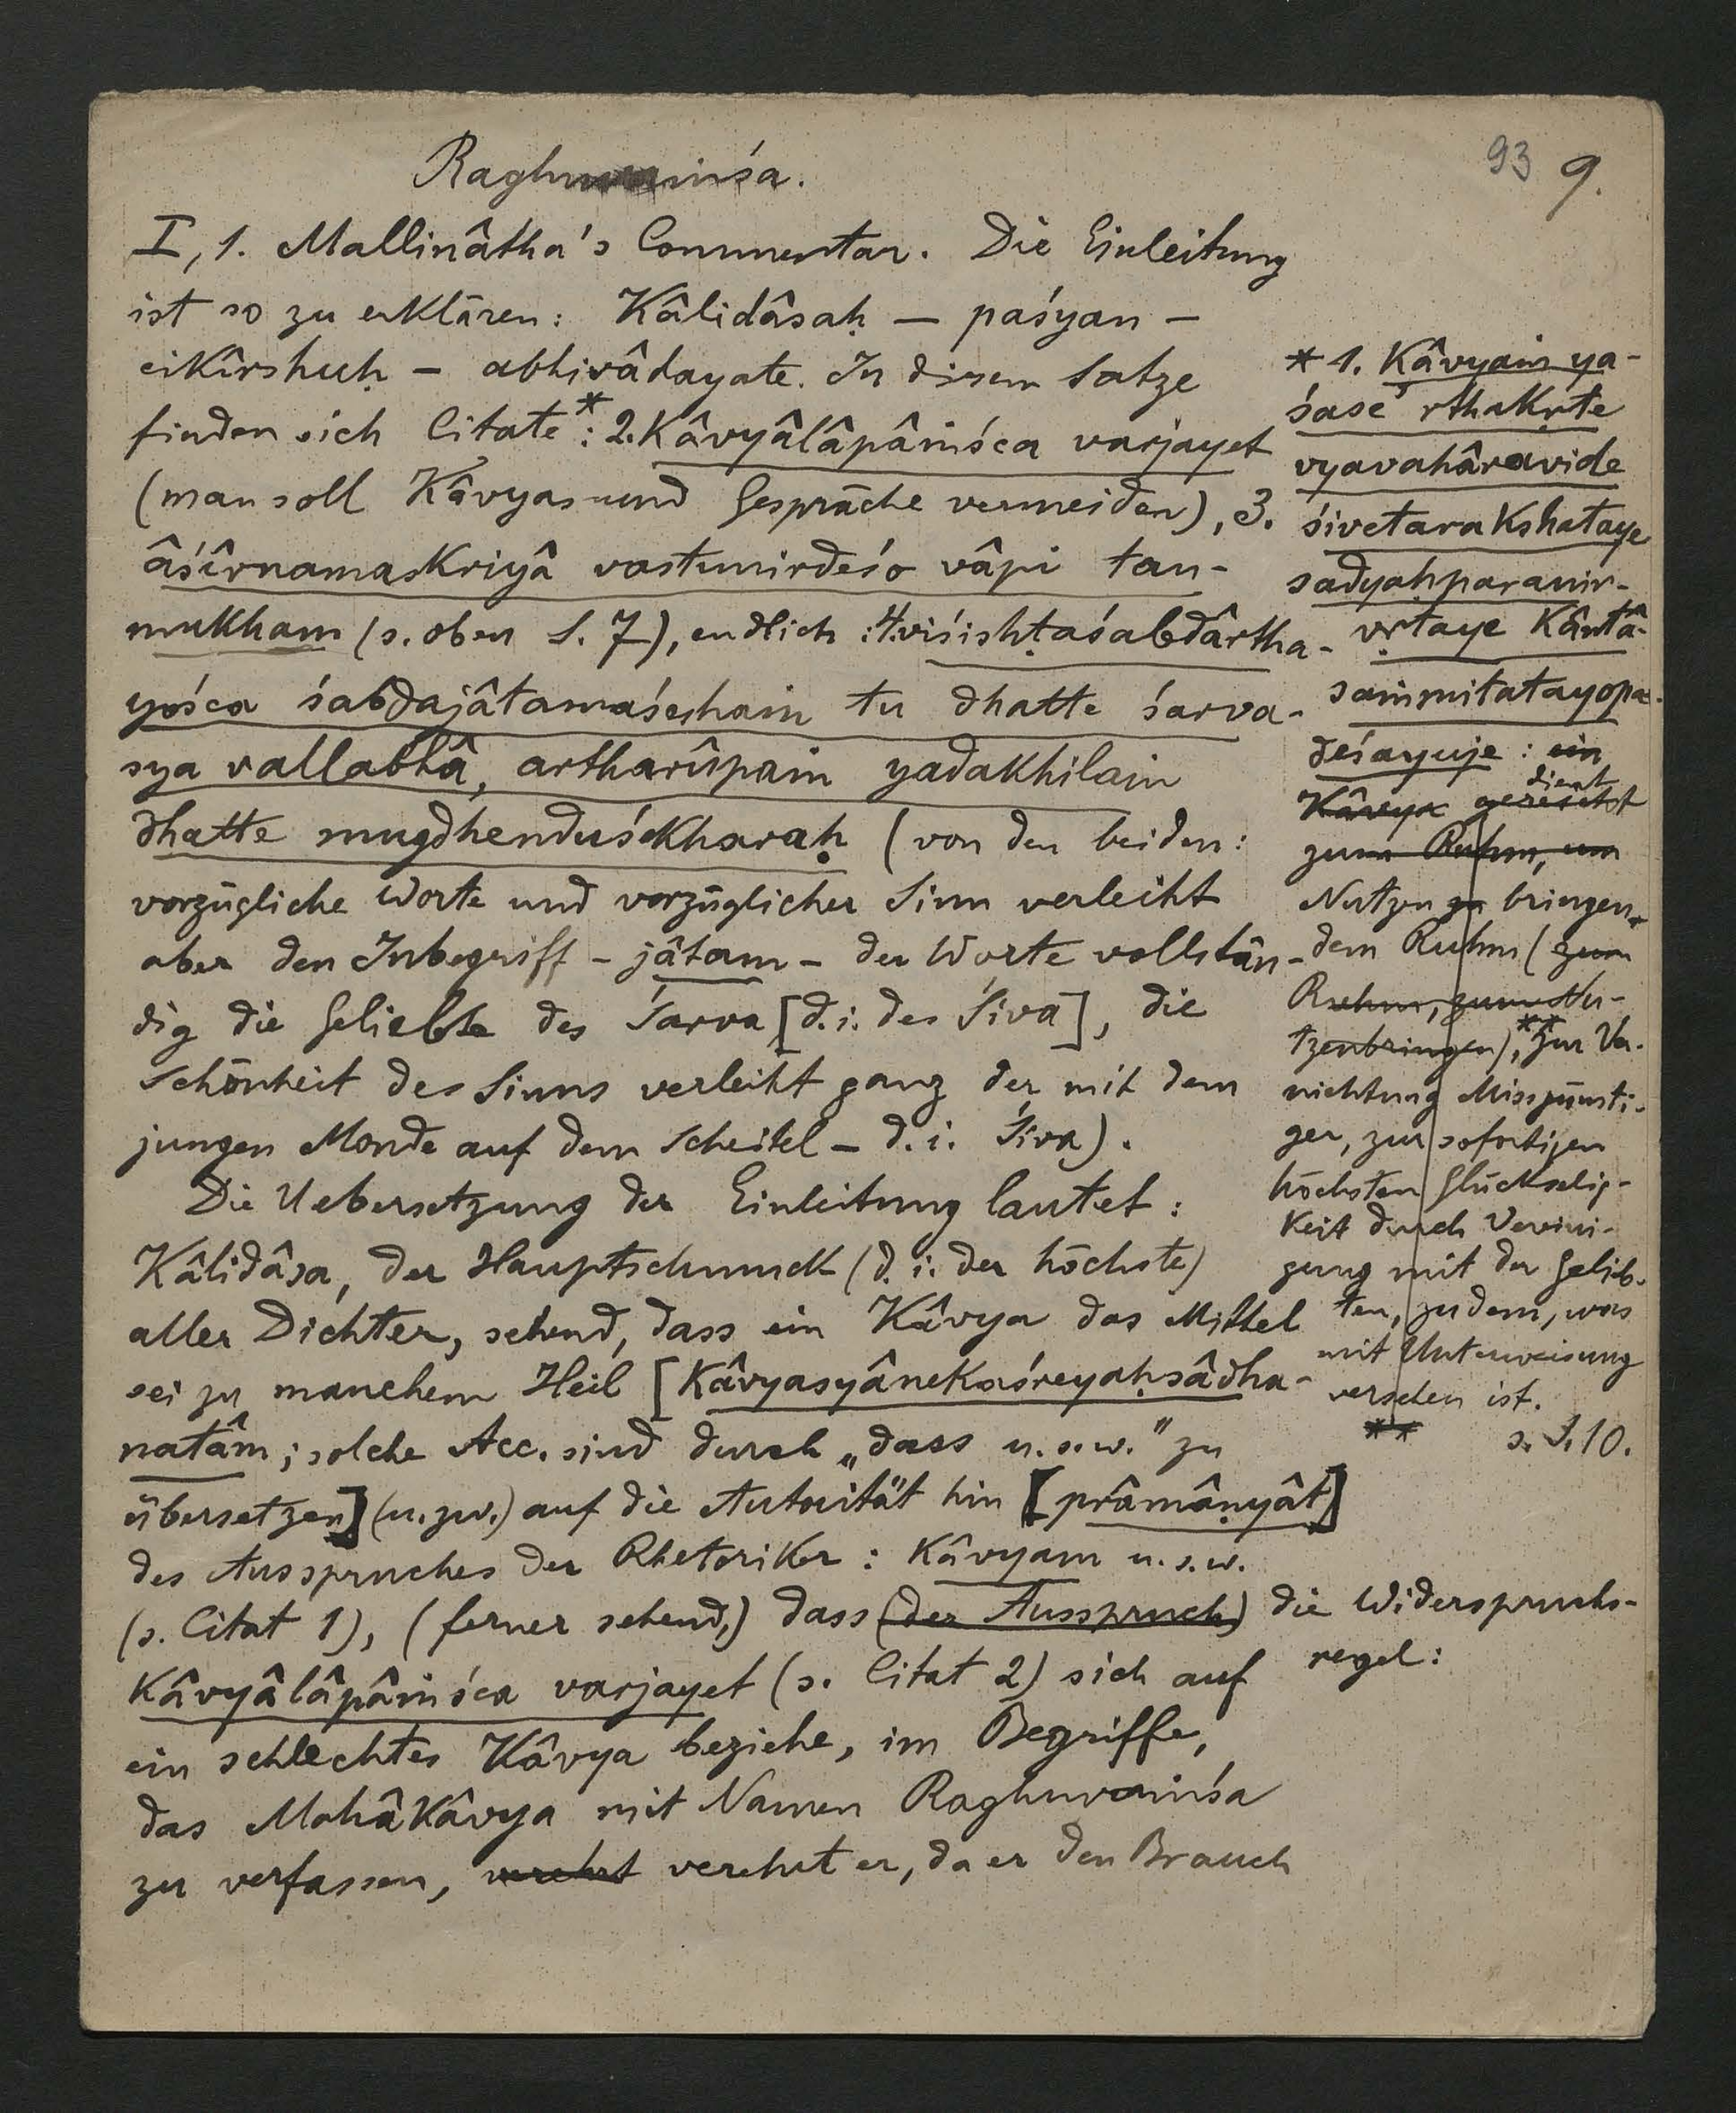 93 9.
Raghuvaṁśa.
I, 1. Mallinâtha's Commentar. Die Einleitung
ist so zu erklären: Kâlidâsaḥ — paśyan —
cikîrshuḥ — abhivâdayate. In diesem Satze
finden sich Citate*: 2. Kâvyâlâpâṁśca varjayet
(man soll Kâvyas und Gespräche vermeiden), 3.
âśîrnamaskriyâ vastunirdeśo vâpi tan-
mukham (s. oben S. 7), endlich: 4. viśishṭaśabdârtha-
yośca śabdajâtamaśeshaṁ tu dhatte śarva-
sya vallabhâ, artharûpaṁ yadakhilaṁ
dhatte mugdhenduśekharaḥ (von den beiden:
vorzügliche Worte und vorzüglicher Sinn verleiht
aber den Inbegriff - jâtam - der Worte vollstän-
dig die Geliebte des Śarva [d. i. des Śiva], die
Schönheit des Sinns verleiht ganz der mit dem
jungen Monde auf dem Scheitel - d. i. Śiva).
Die Uebersetzung der Einleitung lautet:
Kâlidâsa, der Hauptschmuck (d. i. der höchste)
aller Dichter, sehend, dass ein Kâvya das Mittel
sei zu manchem Heil [Kâvyasyânekaśreyaḥsâdha-
natâm; solche Acc. sind durch „dass u. s. w." zu
übersetzen] (u. zw.) auf die Autorität hin [prâmâṇyât]
des Ausspruches der Rhetoriker: Kâvyam u. s. w.
(s. Citat 1), (ferner sehend,) dass (der Ausspruch) die Widerspruchs-
regel:
Kâvyâlâpâṁśca varjayet (s. Citat 2) sich auf
ein schlechtes Kâvya beziehe, im Begriffe,
das Mahâkâvya mit Namen Raghuvaṁśa
zu verfassen, verehrt verehrt er, da er den Brauch
* 1. Kâvyaṁ ya-
śase 'rthakṛte
vyavahâravide
śivetarakshataye
sadyaḥparanir-
vṛtaye Kântâ-
saṁmitatayopa-
deśayuje: ein
dient
Kâvya gereicht
zum Ruhm, um
Nutzen zu bringen-
dem Ruhm (zum
Ruhm, zum Nu-
tzenbringen),** zur Ver-
nichtung Missgünsti-
ger, zur sofortigen
höchsten Glückselig-
keit durch Verein-
gung mit der Gelieb-
ten, zu dem, was
mit Unterweisung
versehen ist.
** s. S. 10.